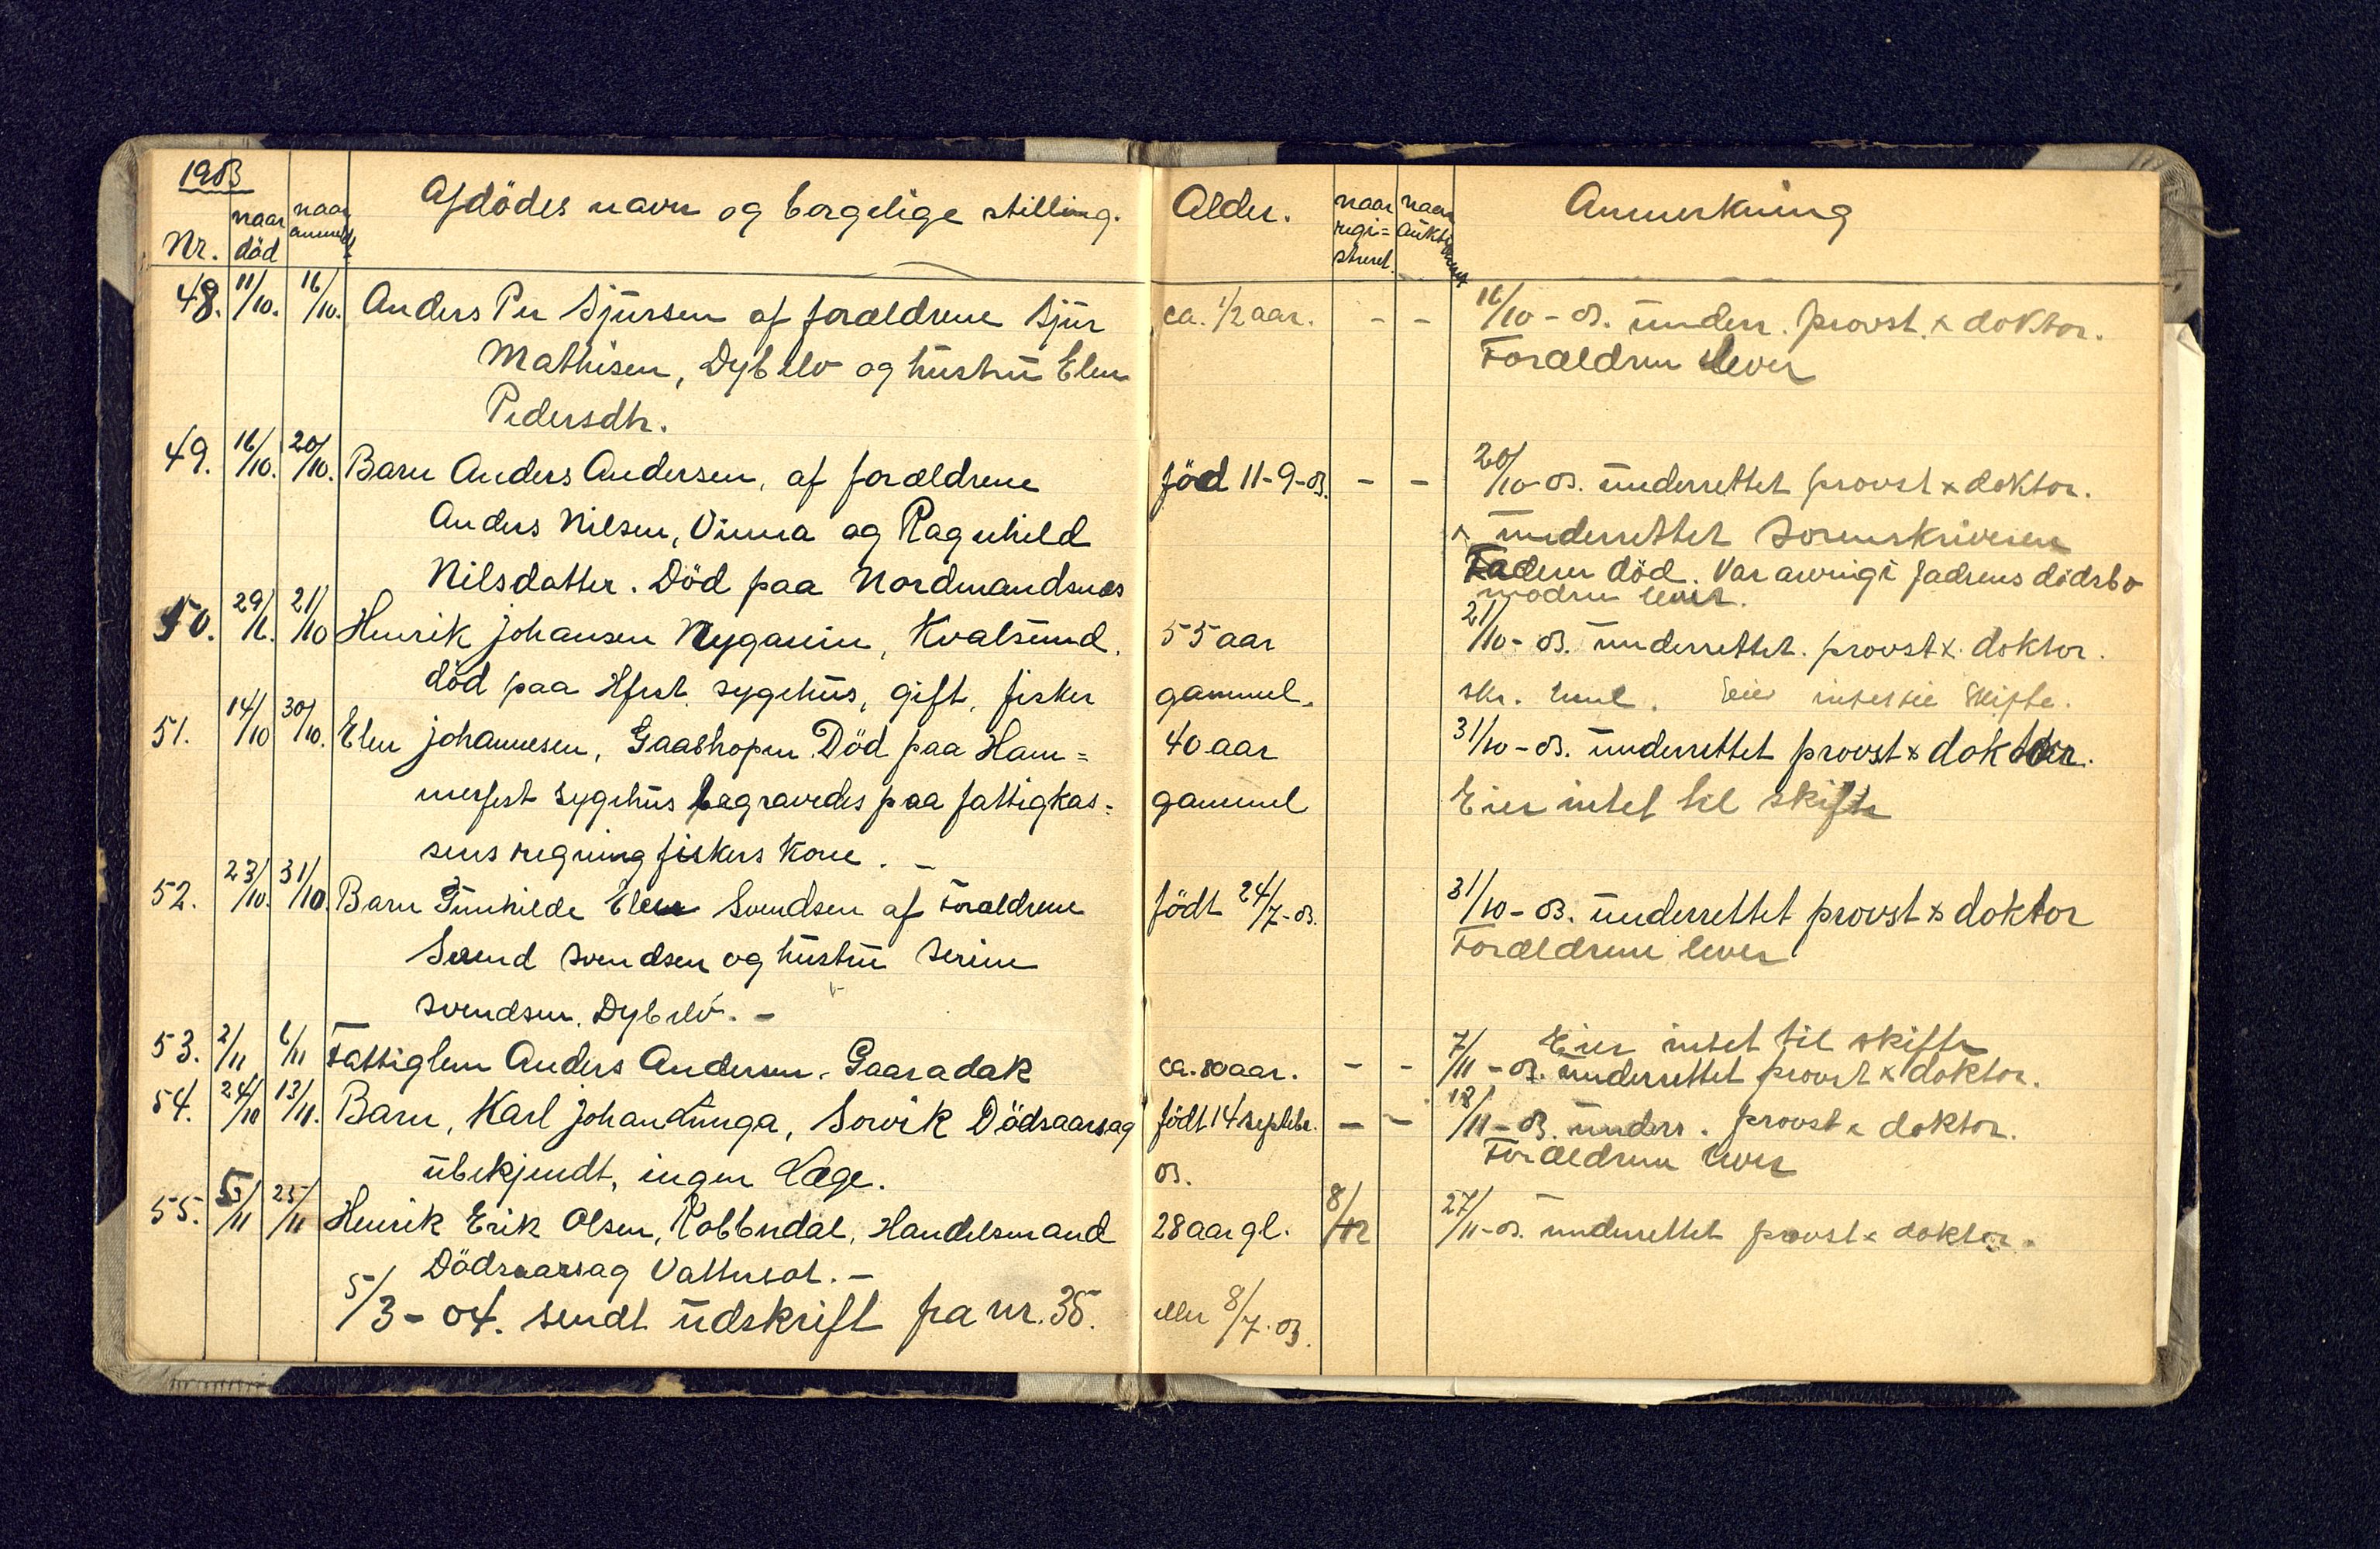 1903
Nr. naar död naar anmeldt Afdödes navn og borgelige stilling. Alder. naar regi= streret. naar auktioneret Anmerkning
48. 11/10. 16/10. Anders Per Sjursen af forældrene Sjur ca. 1/2 aar. - - 16/10 - 03. underr. provst & doktor.
Mathisen, Dybelv og hustru Elen Forældrene lever
Pedersdtr.
49. 16/10. 20/10. Barn Anders Andersen, af forældrene föd 11-9-03. - - 20/10-03. underrettet provst & doktor.
Anders Nilsen, Vinna og Ragnhild & underrettet Sorenskriveren
Nilsdatter. Död paa Nordmandsnæs Faderen död. Var arving i fadrens dödsbo
modren lever.
50. 29/6. 21/10 Henrik Johansen Nyganin, Kvalsund, 55 aar 21/10 - 03. underrettet. provst & doktor.
död paa Hfest sygehus, gift, fisker gammel. skr. Eier intet til Skifte.
51. 14/10 30/10. Elen Johannesen, Gaashopen. Död paa Ham= 40 aar 31/10 - 03. underrettet provst & doktor.
merfest sygehus bagravedes paa fattigkas= gammel Eier intet til skifte
sens regning fiskers Kone. -
52. 23/10. 31/10. Barn Gunhilde Elen Svendsen af Foraldrene födt 24/7-03. 31/10 - 03. underrettet provst & doktor
Svend Svendsen og hustru Serine Forældrene lever
Svendsen. Dybelv. -
53. 2/11 6/11 Fattiglem Anders Andersen. Gaaradak ca. 80 aar. - - 7/11 - 03. underrettet provst & doktor.
Eier intet til skifte
54. 24/10 13/11. Barn, Karl Johan Lunga, Sorvik Dödsaarsag födt 14 septebr. - - 18/11 - 03. underr. provst & doktor.
ubekjendt, ingen Læge. 03. Forældrene lever
55. 5/11 25/11 Henrik Erik Olsen, Kobbndal, Handelsmand 28 aar gl. 8/12 27/11-03. underrettet provst & doktor.
Dödsaarsag Vattersot. -
5/3 - 04. sendt udskrift fra nr. 35. eller 8/7.03.